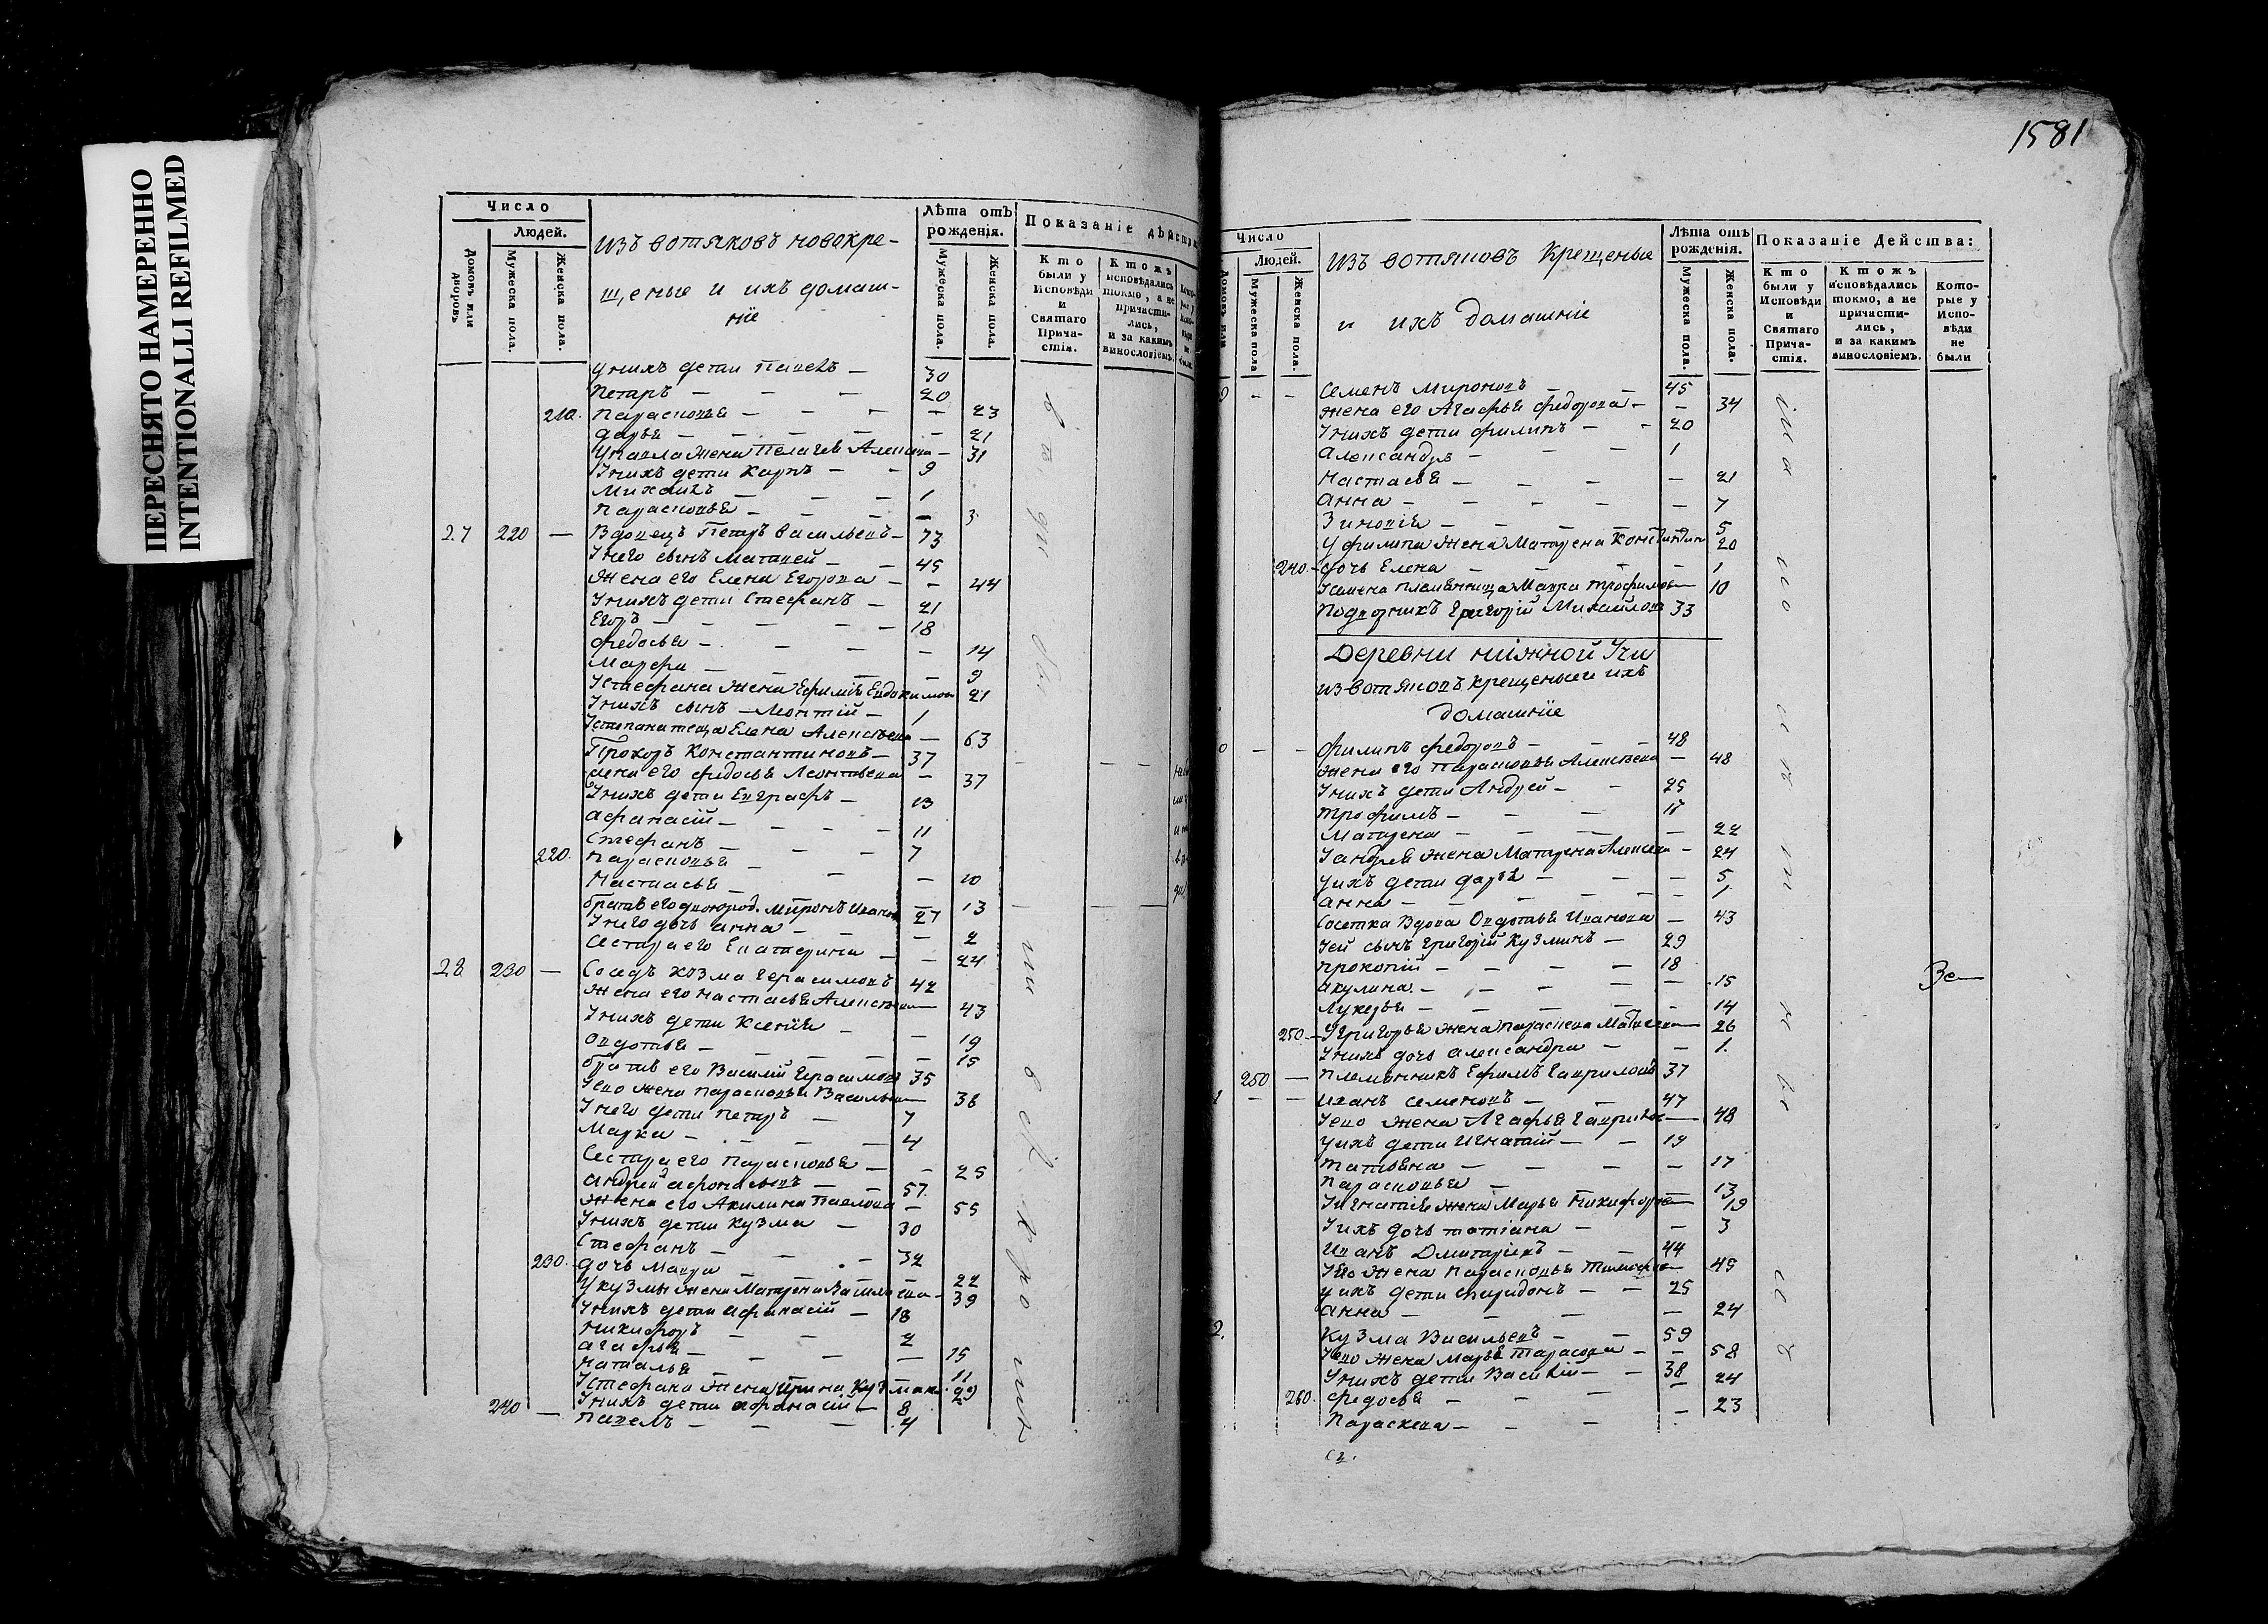 ПЕРЕСНЯТО НАМЕРЕННО
INTENTIONALLI REFILMED
Число
Людей.
Домовъ или дворовъ
Мужеска пола.
Женска пола.
Изъ вотяковъ новокре-
щеные и ихъ домаш-
ніе
Лѣта отъ рожденія.
Мужеска пола.
Женска пола.
Показаніе дѣйств
Кто были у Исповѣди и Святаго Прича-стія.
Ктожъ исповѣдались токмо, а не причасти-лись, и за какимъ винословіемъ.
У нихъ дети Павелъ — 30
Петръ — — — 20
210. Парасковья — — — — 23
Дарья — — — — — 21
У павла жена Пелагея Алексеева — 31
У нихъ дети Карпъ — — 9
Михаилъ — — — 1
Парасковья — — — — 3
27 220 — Вдовецъ Петръ Васильевъ — 73
У него сынъ Матвей — — 45
Жена его Елена Егорова — — 44
У нихъ дети Стефанъ — 21
Егоръ — — — — — 18
Федосья — — — — 14
Марфа — — — — 9
У стефана жена Ефимія Евдокимова 21
У нихъ сынъ — Леонтій — 1
У степана теща Елена Алексеева — 63
Прохоръ Константиновъ — 37
жена его Федосья Леонтьева — 37
У нихъ дети Евграфъ — 13
Афанасій — — — — 11
Стефанъ — — — 7
220. Парасковья — — — 10
Настасья — — 13
братъ его двоюрод. Миронъ Иванов 27
У него дочь анна — — — 2
Сестра его Екатерина — — 24
28 230 — Соседъ Козма Герасимовъ 42
Жена его Настасья Алексеева — 43
У нихъ дети Ксенія — — 19
Овдотья — — — — — 15
братъ его Василій Герасимовъ 35
У ево жена Парасковья Васильева — 38
У него дети Петръ — 7
Марка — — — — 4
Сестра его Парасковья — — 25
Андрей афонасьевъ — — 57.
Жена его Акилина Павлова — 55
У нихъ дети Кузма — 30
Стефанъ — — — 32
230. дочь Мавра — — — 22
У кузмы жена Матрена Васильева — 39
У нихъ дети афанасій — 18
Никифоръ — — 2
агафья — — — — 15
Наталья — — 11
У Стефана жена Ирина Кузмина 29
240 — У нихъ дети афонасій — 8
Павелъ — — — 4
1581
Число
Людей.
Домовъ или
Мужеска пола
Женска пола.
Изъ вотяковъ Крещеные
и ихъ домашніе
Лѣта отъ рожденія.
Мужеска пола.
Женска пола.
Показаніе Действа:
Кто были у Исповѣди и Святаго Прича-стія.
Ктожъ исповѣдались токмо, а не причасти-лись, и за какимъ винословіемъ.
Кото-рые у Испо-вѣди не были
9 — — Семенъ Мироновъ — — 45
жена его Агафья Федорова — — 34
У нихъ дети Филипъ — — 20
Александръ — — — 1
Настасья — — — — 21
Анна — — — — — 7
Зиновія — — — — 5
У филипа жена Матрена Констянтин 20
240. — дочь Елена — — — — 1
У семена племянница Мавра Трофимова — 10
Подворникъ Григорій Михайловъ 33
Деревни нижной Учи
из вотяковъ крещеные и ихъ
домашніе
0 — — Филипъ Федоровъ — — — 48
жена его Парасковья Алексеева — 48
У нихъ дети Андрей — — 25
Трофимъ — — — 17
Матрена — — — — 22
У андрея жена Матрена Алексеева — 24
У ихъ дети Дарья — — — 5
анна — — — — — 1
Соседка Вдова Овдотья Иванова — 43
У ей сынъ Григорій Кузминъ — 29
Прокопій — — — — 18
акулина. — — — — — 15
Лукерья — — — — — 14
250. — У Григорья жена параскева Матвеева — 26
У нихъ дочь александра — — 1.
250 — Племянникъ Ефимъ Гавриловъ 37
1 — — Иванъ Семеновъ — — 47
У ево жена Агафья Гаврилов — 48
У ихъ дети Игнатій — — 19
Татьяна — — — — 17
Парасковья — — — 13
У игнатья жена Марья Никифоров — 19
У ихъ дочь татіана — — 3
Иванъ Дмитріевъ — — 44
У ево жена Парасковья Тимофеев — 45
У ихъ дети Спиридонъ — — 25
анна — — — — 24
2. Кузма Васильевъ — — 59
У ево жена Марья Тарасова — — 58
У нихъ дети Василій — — 38
260. Федосья — — — — 24
Параскева — — — — 23